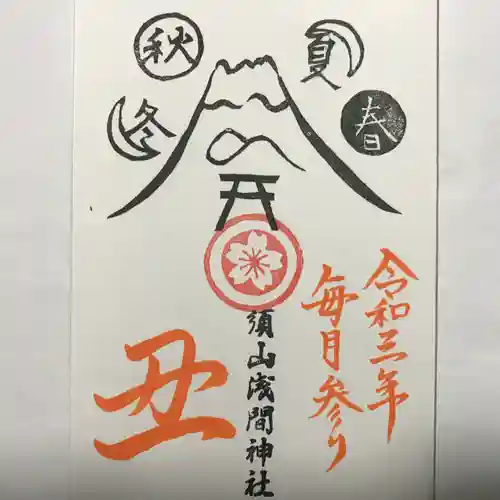 春
夏
秋
冬
令和三年
毎月参り
須山浅間神社
丑